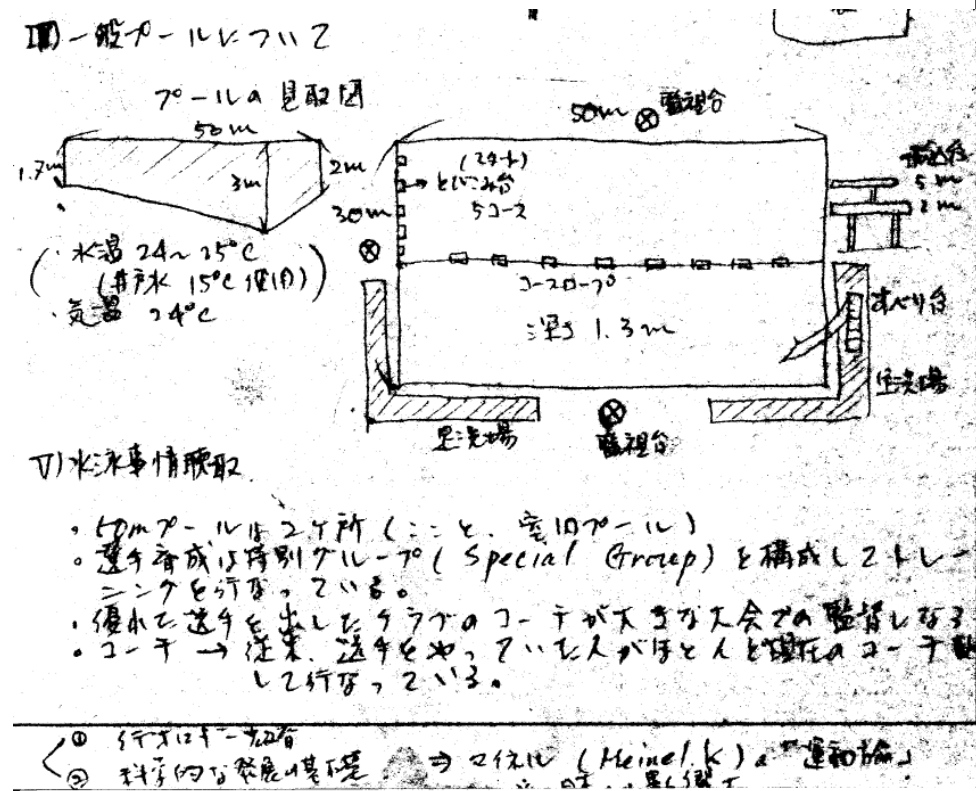 一般プールについて
プールの見取図
50m
1.7m
3m
2m
水温 24～25℃
(井戸水 15℃使用)
気温 24℃
50m
監視台
(スタート)
とびこみ台
5コース
30m
コースロープ
深さ 1.3m
5m
すべり台
足洗場
監視台
V)水泳事情聴取
・50mプールは2ヶ所(ここと、室内プール)
・選手育成は特別グループ(Special Group)を構成してトレー
ニングを行なっている。
・優れた選手を出したクラブのコーチが大きな大会での監督になる
・コーチ → 従来、選手をやっていた人がほとんど現在のコーチ
して行なっている。
①
② 科学的な発展の基礎 ⇒ マイネル (Meinel.K)の「運動論」